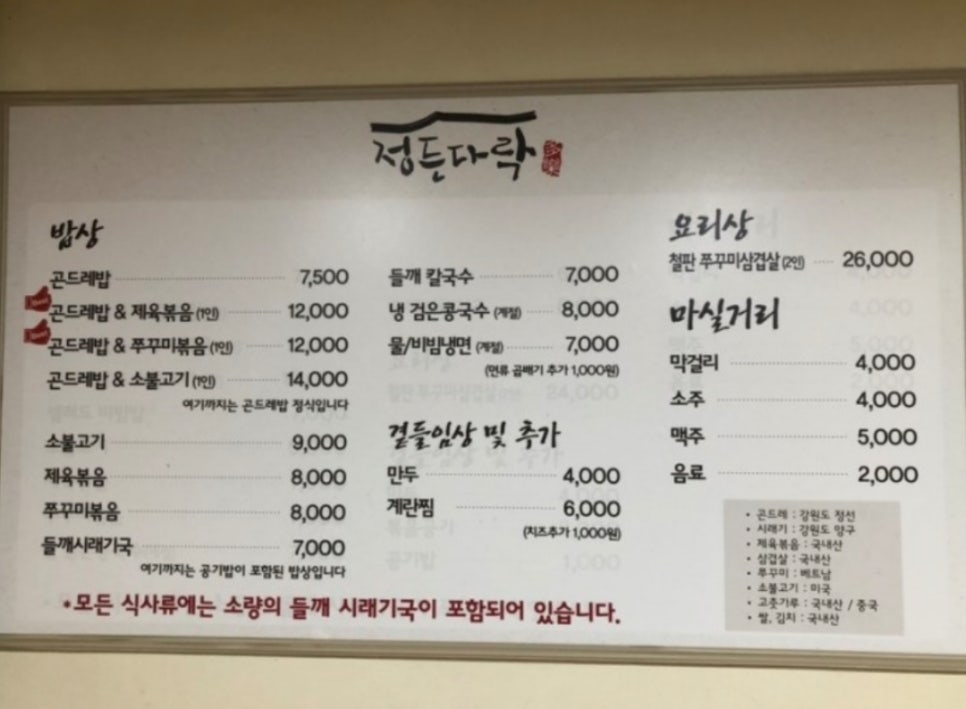 정든다락
밥상
곤드레밥 7,500
곤드레밥 & 제육볶음 (1인) 12,000
곤드레밥 & 쭈꾸미볶음 (1인) 12,000
곤드레밥 & 소불고기 (1인) 14,000
여기까지는 곤드레밥 정식입니다
소불고기 9,000
제육볶음 8,000
쭈꾸미볶음 8,000
들깨시래기국 7,000
여기까지는 공기밥이 포함된 밥상입니다
들깨 칼국수 7,000
냉 검은콩국수 (계절) 8,000
물/비빔냉면 (계절) 7,000
(면류 곱배기 추가 1,000원)
곁들임상 및 추가
만두 4,000
계란찜 6,000
(치즈추가 1,000원)
요리상
철판 쭈꾸미삼겹살 (2인) 26,000
마실거리
막걸리 4,000
소주 4,000
맥주 5,000
음료 2,000
• 곤드레 : 강원도 정선
• 시래기 : 강원도 양구
• 제육볶음 : 국내산
• 삼겹살 : 국내산
• 쭈꾸미 : 베트남
• 소불고기 : 미국
• 고춧가루 : 국내산 / 중국
• 쌀, 김치 : 국내산
*모든 식사류에는 소량의 들깨 시래기국이 포함되어 있습니다.